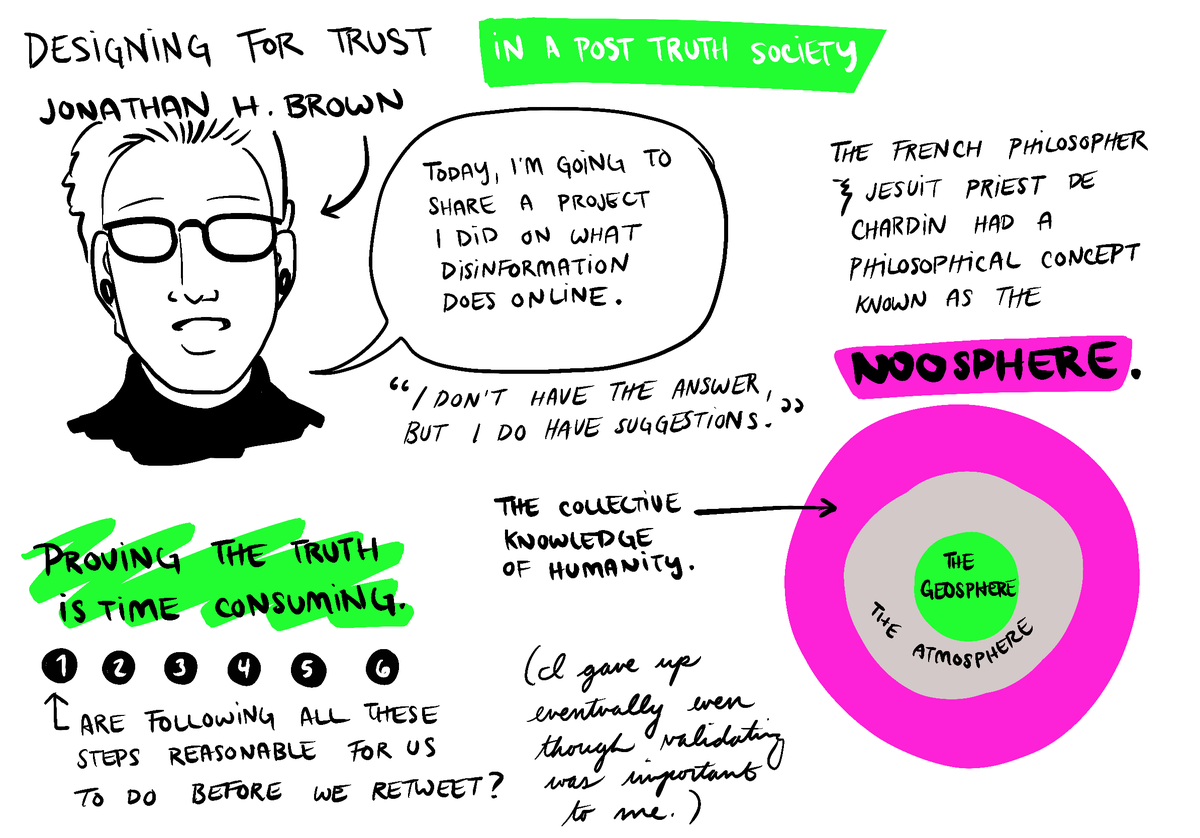 DESIGNING FOR TRUST IN A POST TRUTH SOCIETY
JONATHAN H. BROWN
TODAY, I'M GOING TO
SHARE A PROJECT
I DID ON WHAT
DISINFORMATION
DOES ONLINE.
"I DON'T HAVE THE ANSWER,
BUT I DO HAVE SUGGESTIONS."
THE FRENCH PHILOSOPHER
& JESUIT PRIEST DE
CHARDIN HAD A
PHILOSOPHICAL CONCEPT
KNOWN AS THE
NOOSPHERE.
THE COLLECTIVE
KNOWLEDGE
OF HUMANITY.
THE
GEOSPHERE
THE ATMOSPHERE
PROVING THE TRUTH
IS TIME CONSUMING.
1 2 3 4 5 6
ARE FOLLOWING ALL THESE
STEPS REASONABLE FOR US
TO DO BEFORE WE RETWEET?
(I gave up
eventually even
though validating
was important
to me.)